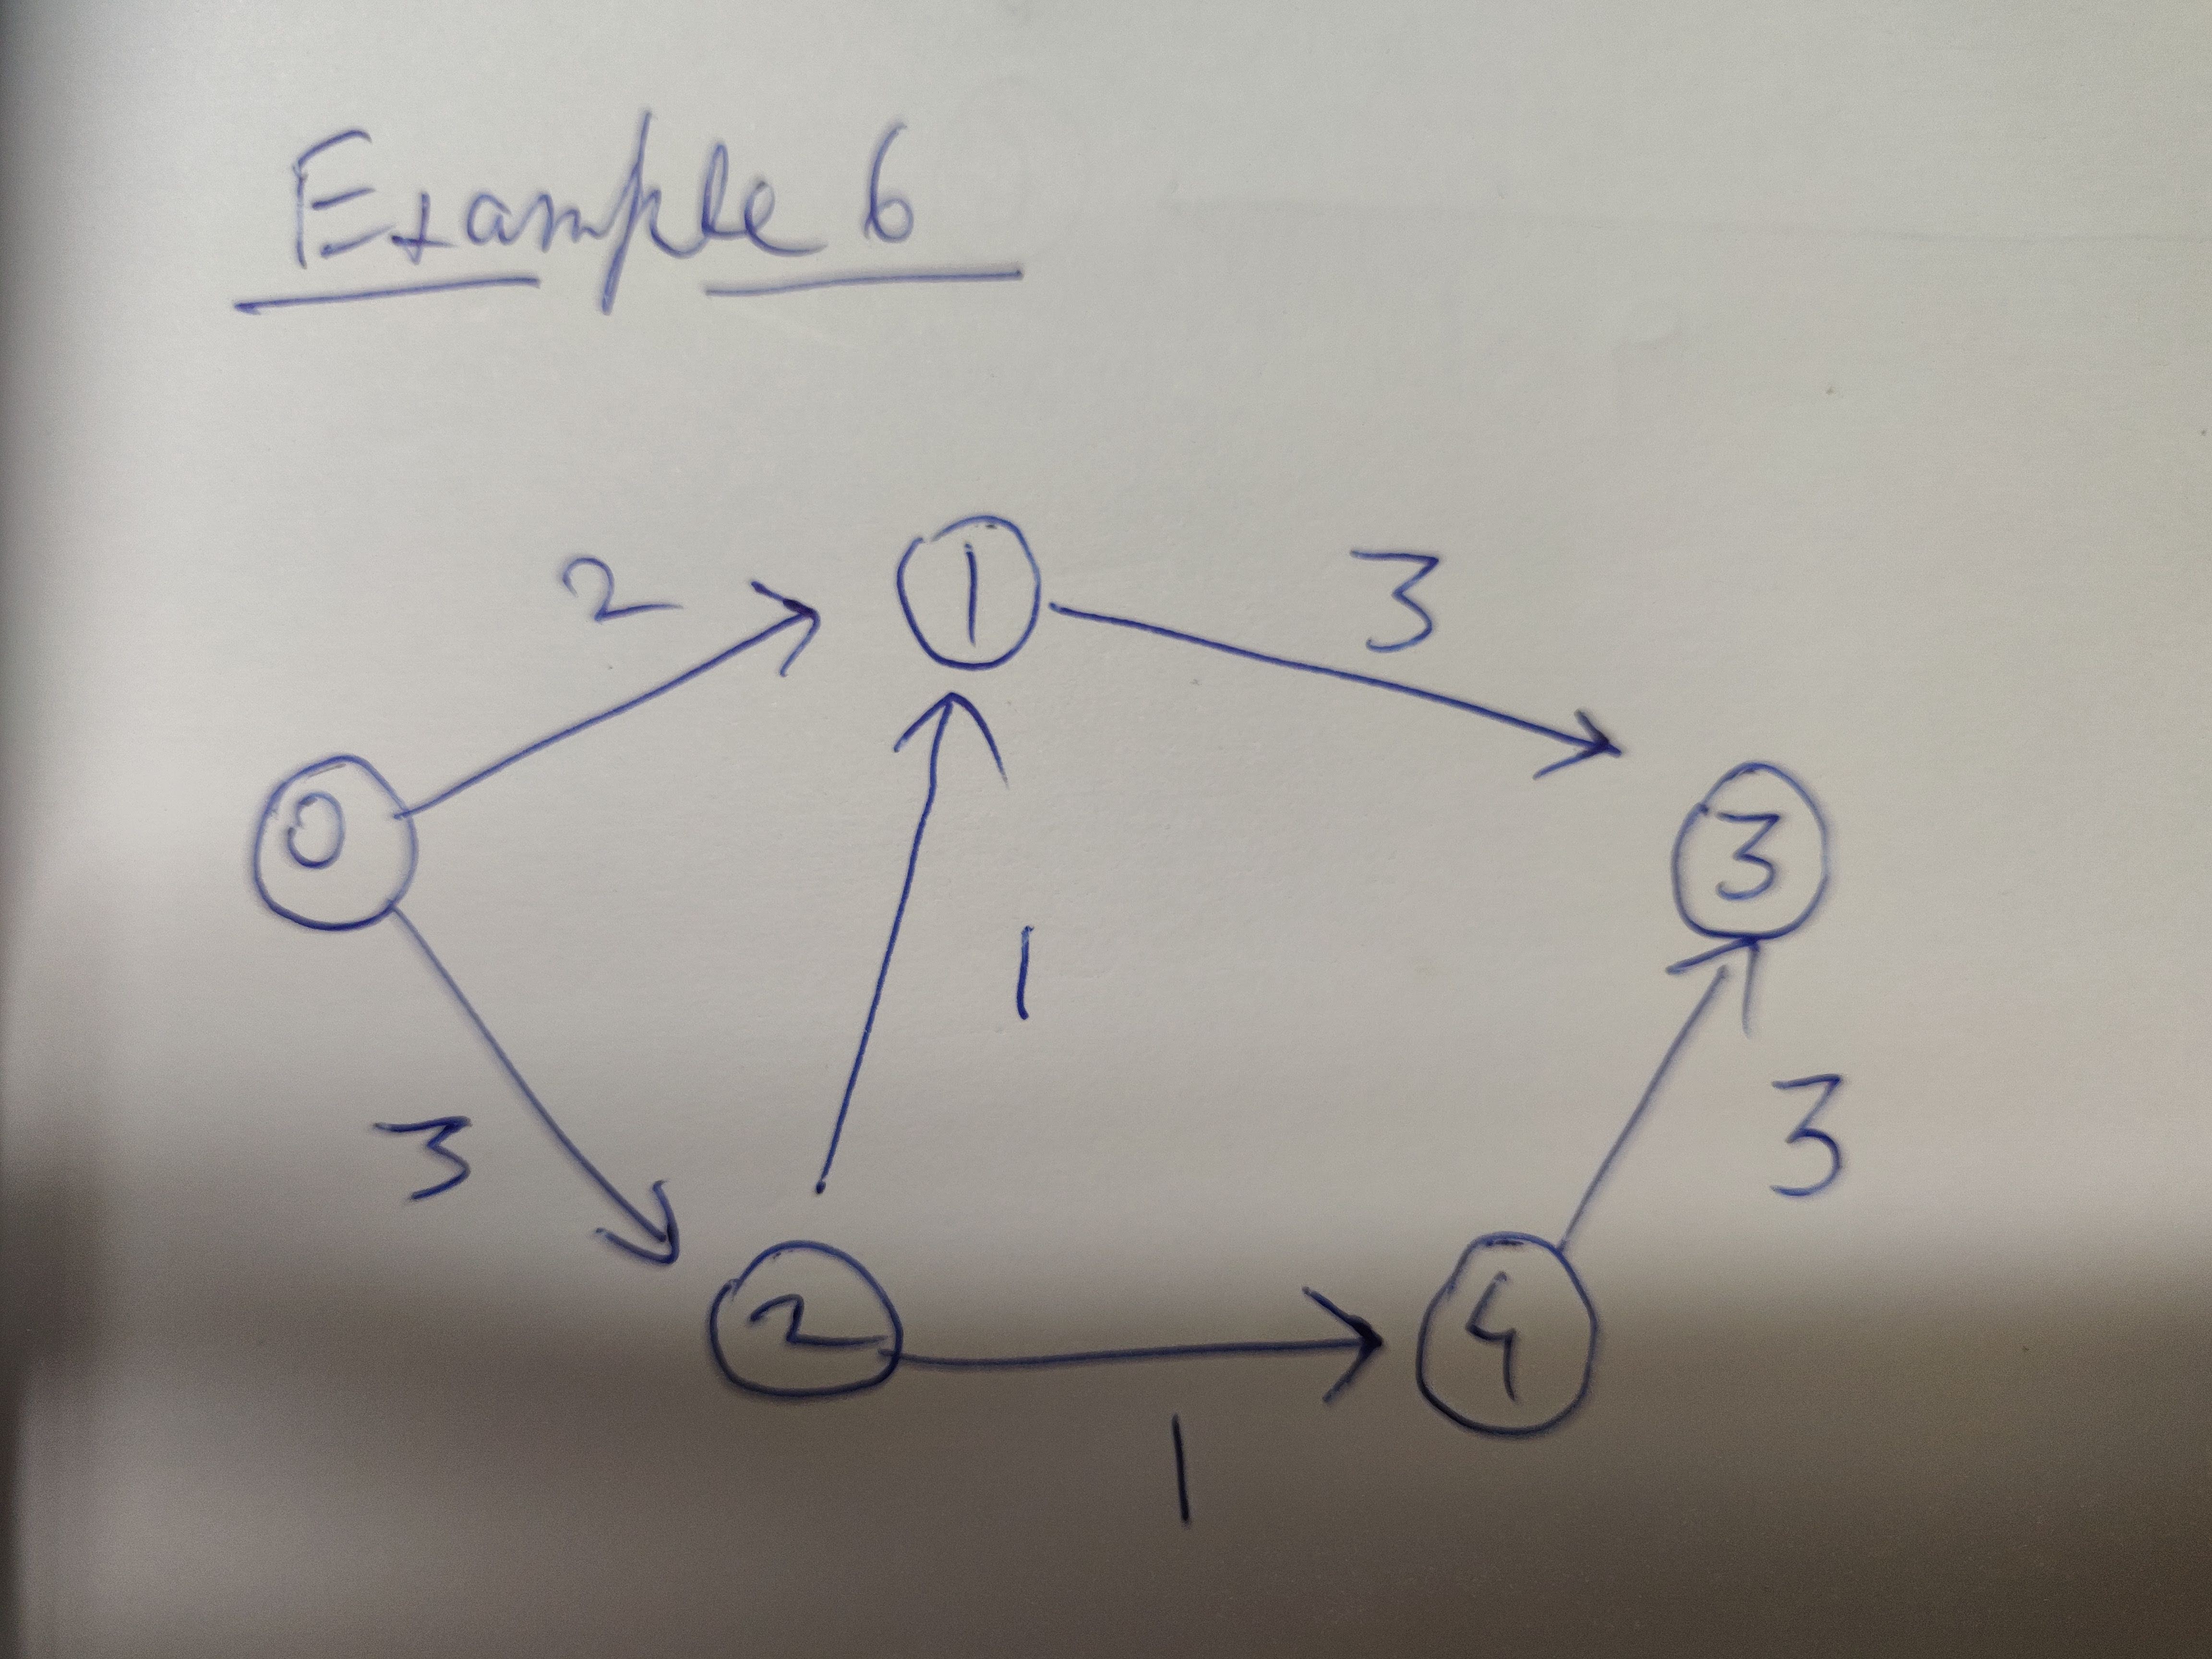 Example 6
2
1
3
0
3
1
3
3
2
4
1